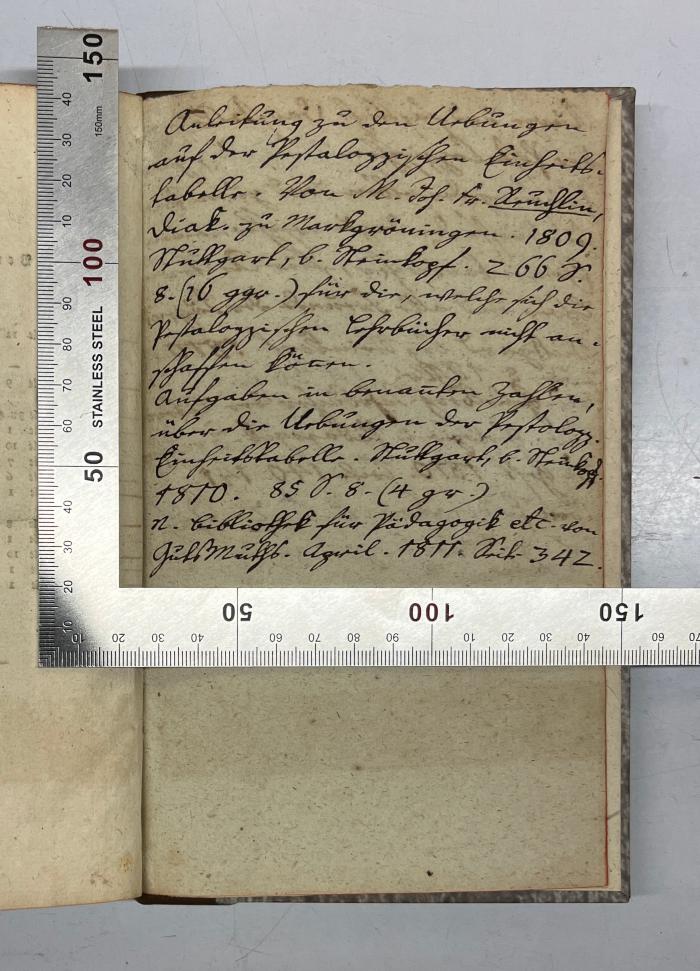 Anleitung zu den Uebungen
auf der Pestalozzischen Einheits-
tabelle. Von M. Joh. Fr. Reuchlin,
Diak. zu Markgröningen. 1809.
Stuttgart, b. Steinkopf. 266 S.
8. (16 ggr.) für die, welche sich die
Pestalozzischen Lehrbücher nicht an-
schaffen können.
Aufgaben in benañten Zahlen,
über die Uebungen der Pestalozz.
Einheitstabelle. Stuttgart, b. Steinkopf.
1810. 85 S. 8. (4 gr.)
n. Bibliothek für Pädagogik etc. von
GutsMuths. April. 1811. Seite 342.
150
150mm
100
STAINLESS STEEL
50
40
30
20
10
90
80
70
60
40
30
20
10
20
30
40
50
60
70
80
90
100
10
20
30
40
150
60
70